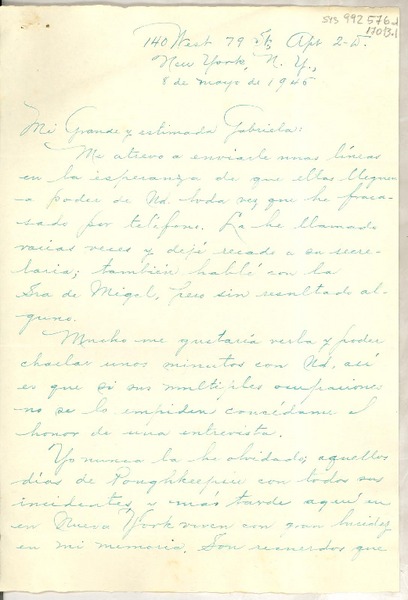 SYS 992 576
140 West 79 St, Apt 2-D.
New York, N. Y.,
8 de mayo de 1946
Mi Grande y estimada Gabriela:
Me atrevo a enviarle unas líneas
en la esperanza de que ellas lleguen
a poder de Ud. toda vez que he fraca-
sado por teléfono. La he llamado
varias veces y dejé recado a su secre-
taria; también hablé con la
Sra de Migel, pero sin resultado al-
guno.
Mucho me gustaría verla y poder
charlar unos minutos con Ud, así
es que si sus multiples ocupaciones
no se lo impiden concédame el
honor de una entrevista.
Yo nunca la he olvidado; aquellos
días de Poughkeepsie con todos sus
incidentes, y más tarde aquí en
en Nueva York viven con gran lucidez
en mi memoria. Son recuerdos que